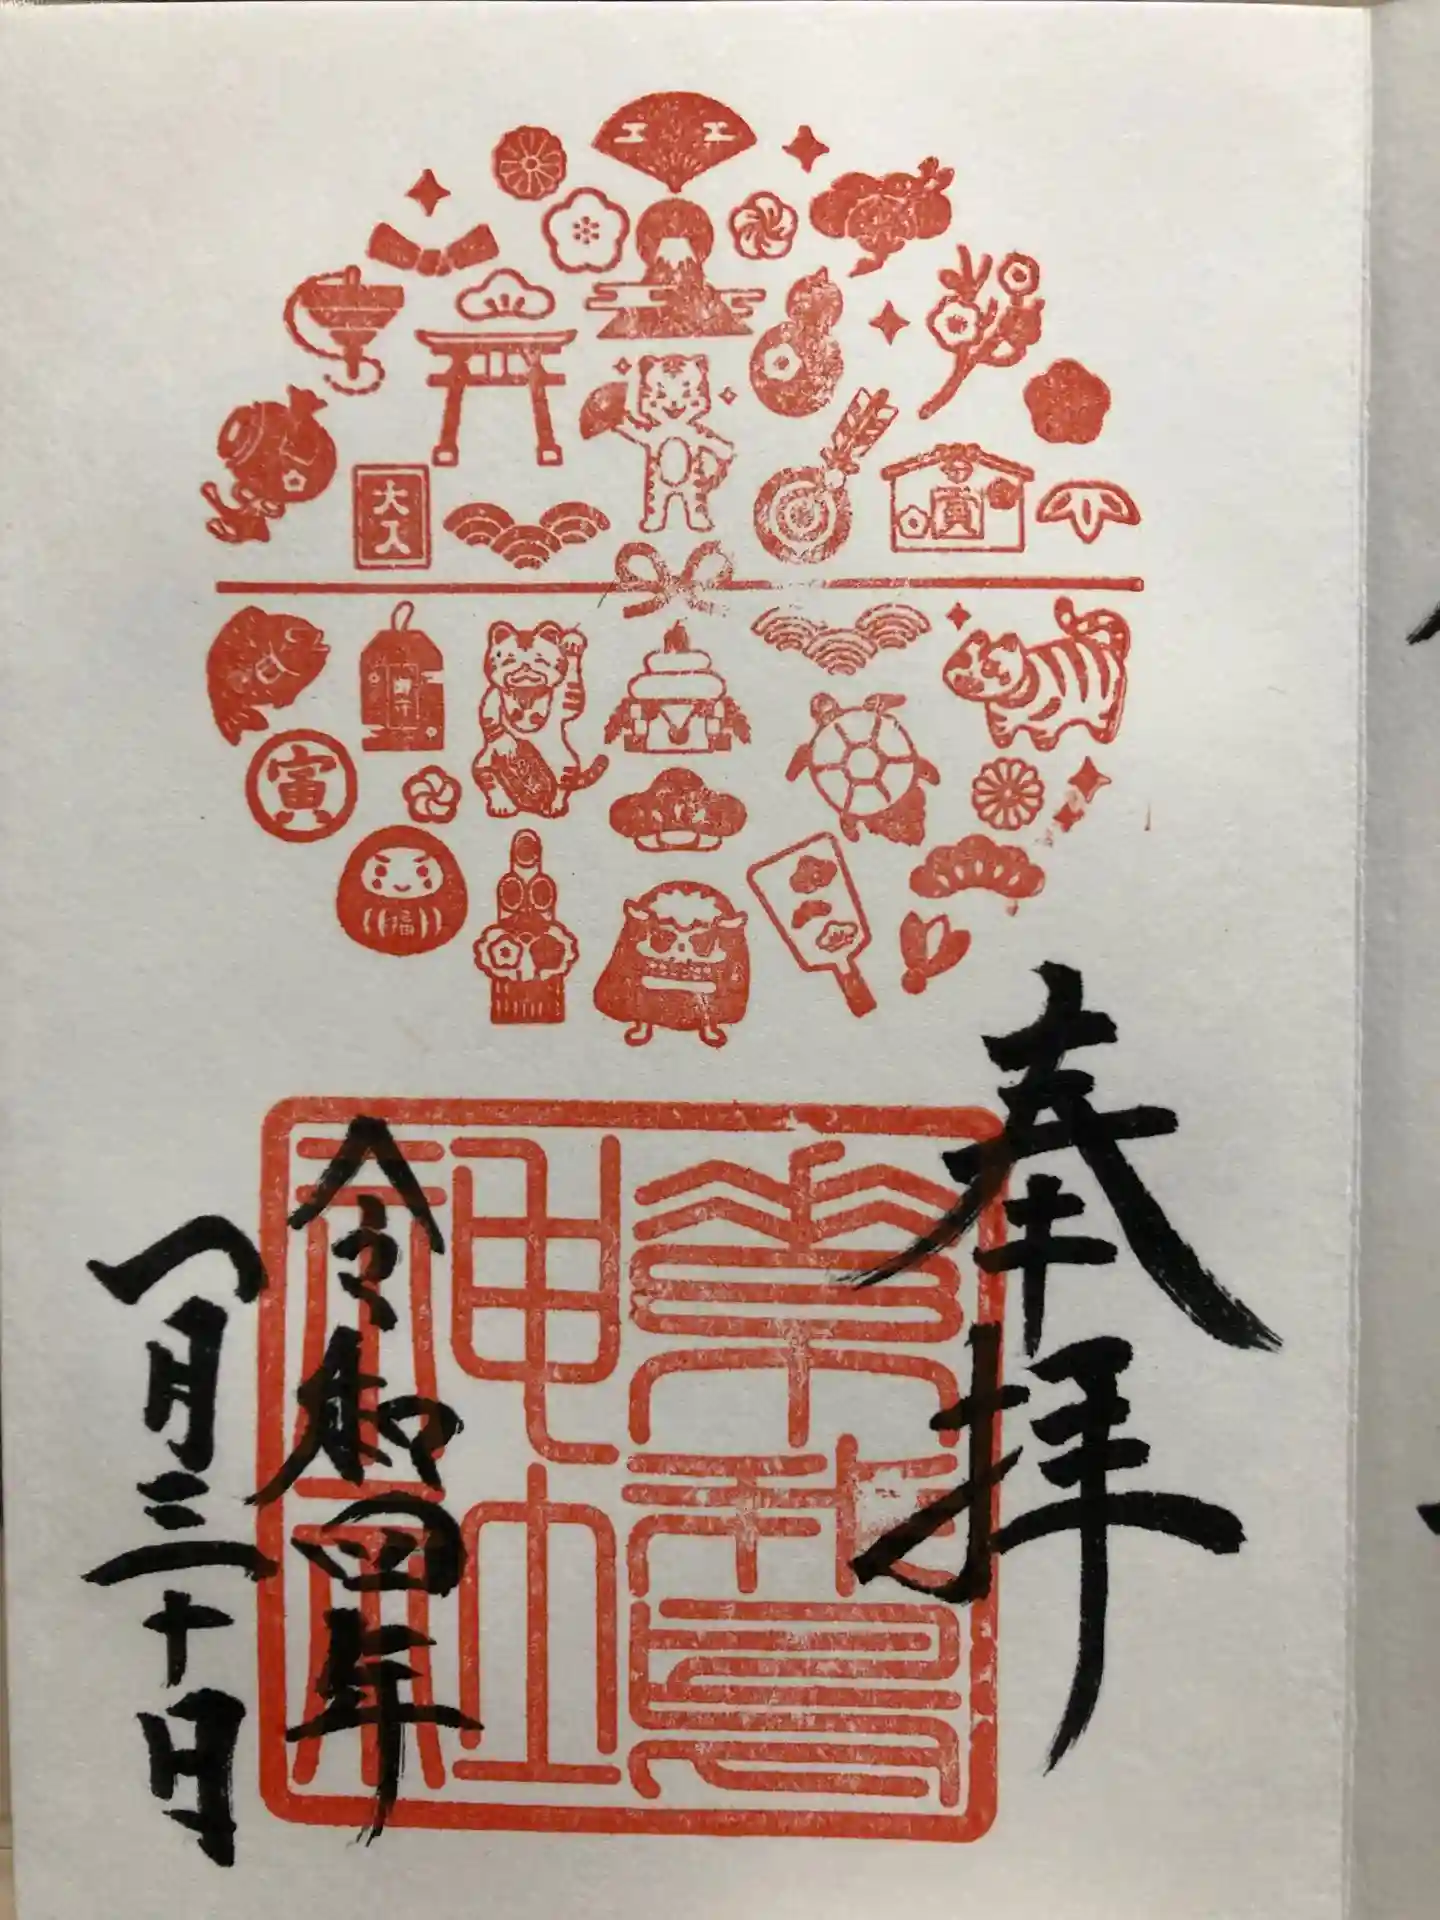 大入
寅
寅
福
奉拝
素鵞
神社
令和四年
一月三十日